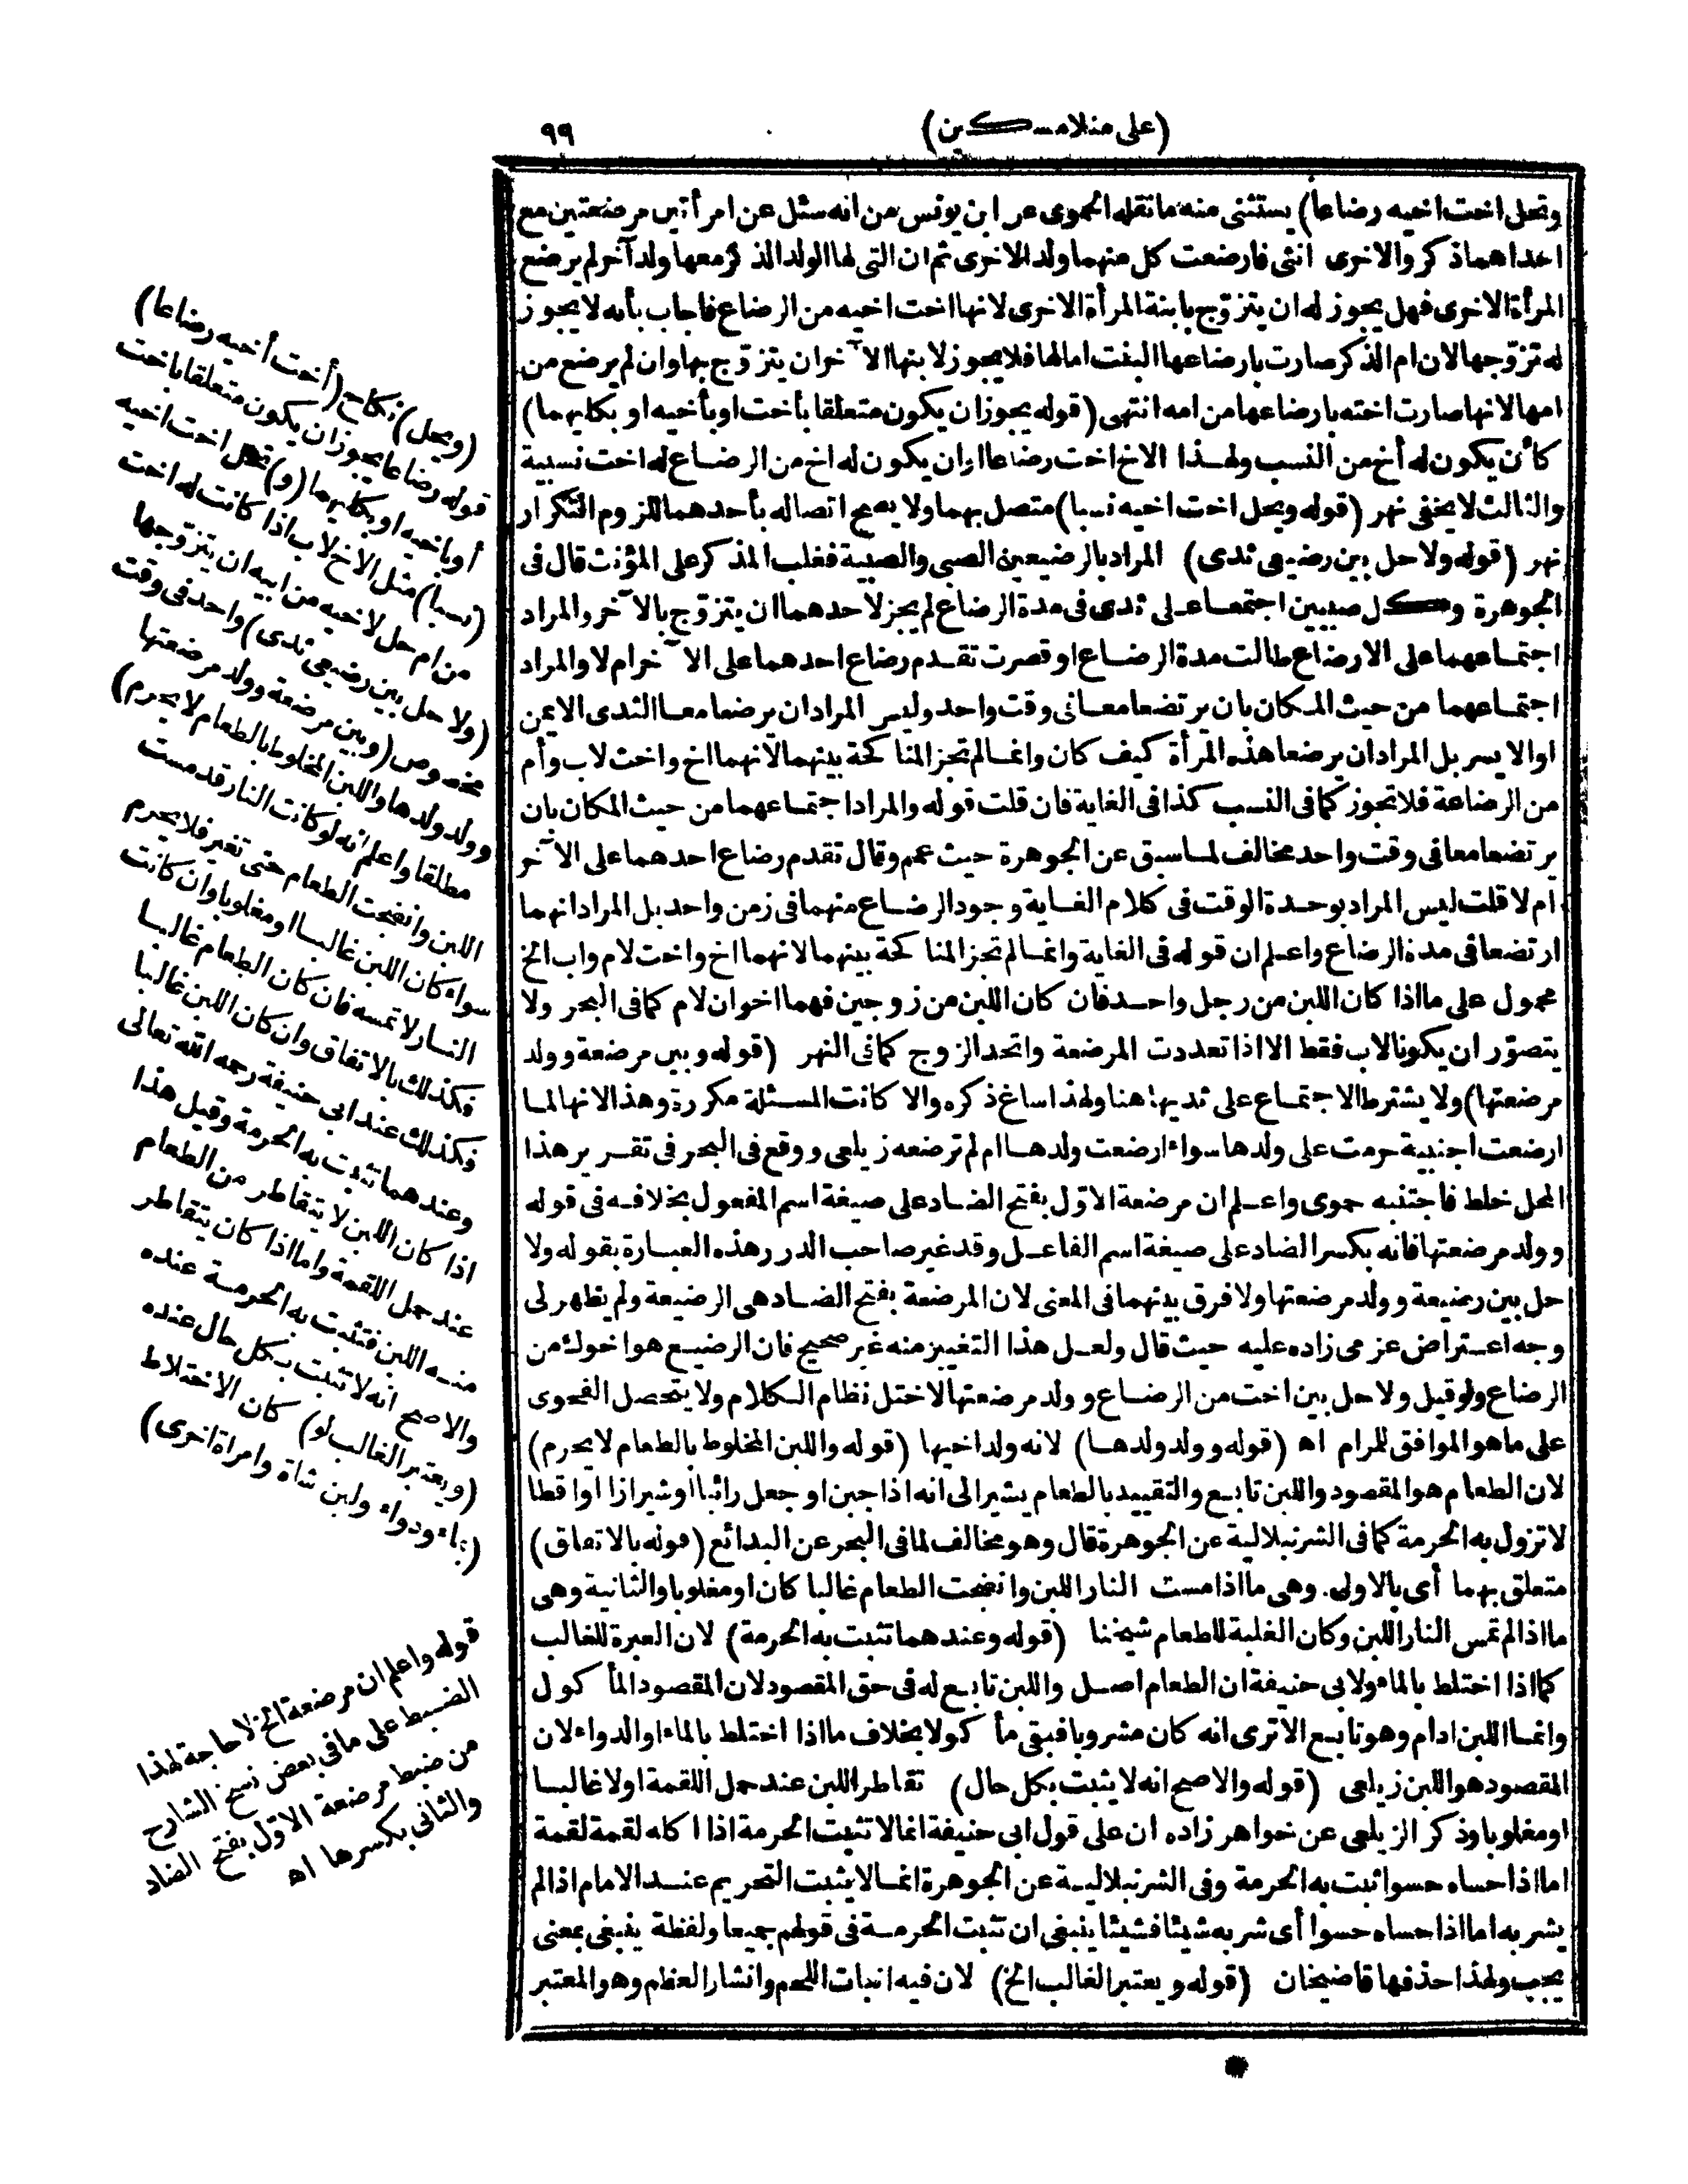 (على منلا مسكين)
٩٩
وتحل اخت اخيه رضاعا) يستثنى منه ما نقله الحموى عن ابن يونس من انه سئل عن امرأتين مرضعتين مع
احداهما ذكر والاخرى انثى فارضعت كل منهما ولد الاخرى ثم ان التى لها الولد الذكر معها ولد آخر لم يرضع
المرأة الاخرى فهل يجوز له ان يتزوّج بابنة المرأة الاخرى لانها اخت اخيه من الرضاع فاجاب بأنه لا يجوز
له تزوّجها لان ام الذكر صارت بارضاعها البنت اما لها فلا يجوز لابنها الآخر ان يتزوّج بها وان لم يرضع من
امها لانها صارت اخته بارضاعها من امه انتهى (قوله يجوز ان يكون متعلقا بأخت او بأخيه او بكليهما)
كأن يكون له أخ من النسب ولهذا الاخ اخت رضاعا او ان يكون له اخ من الرضاع له اخت نسبية
والثالث لا يخفى نهر (قوله ويحل اخت اخيه نسبا) متصل بهما ولا يصح اتصاله بأحدهما للزوم التكرار
نهر (قوله ولا حل بين رضيعى ثدى) المراد بالرضيعين الصبى والصبية فغلب المذكر على المؤنث قال فى
الجوهرة وكل صبيين اجتمعا على ثدى فى مدة الرضاع لم يجز لاحدهما ان يتزوّج بالآخر والمراد
اجتماعهما على الارضاع طالت مدة الرضاع او قصرت تقدم رضاع احدهما على الآخر ام لا والمراد
اجتماعهما من حيث المكان بان يرتضعا معا فى وقت واحد وليس المراد ان يرضعا معا الثدى الايمن
او الايسر بل المراد ان يرضعا هذه المرأة كيف كان وانما لم تجز المناكحة بينهما لانهما اخ واخت لاب وأم
من الرضاعة فلا تجوز كما فى النسب كذا فى الغاية فان قلت قوله والمراد اجتماعهما من حيث المكان بان
يرتضعا معا فى وقت واحد مخالف لما سبق عن الجوهرة حيث عمم وقال تقدم رضاع احدهما على الآخر
ام لا قلت ليس المراد بوحدة الوقت فى كلام الغاية وجود الرضاع منهما فى زمن واحد بل المراد انهما
ارتضعا فى مدة الرضاع واعلم ان قوله فى الغاية وانما لم تجز المناكحة بينهما لانهما اخ واخت لام واب الخ
محمول على ما اذا كان اللبن من رجل واحد فان كان اللبن من زوجين فهما اخوان لام كما فى البحر ولا
يتصوّر ان يكونا لاب فقط الا اذا تعددت المرضعة واتحد الزوج كما فى النهر (قوله وبين مرضعة وولد
مرضعتها) ولا يشترط الاجتماع على ثديها هنا ولهذا ساغ ذكره والا كانت المسئلة مكررة وهذا لانها لما
ارضعت اجنبية حرمت على ولدها سواء ارضعت ولدها ام لم ترضعه زيلعى ووقع فى البحر فى تقرير هذا
المحل خلط فاجتنبه حموى واعلم ان مرضعة الاوّل بفتح الضاد على صيغة اسم المفعول بخلافه فى قوله
وولد مرضعتها فانه بكسر الضاد على صيغة اسم الفاعل وقد غير صاحب الدرر هذه العبارة بقوله ولا
حل بين رضيعة وولد مرضعتها ولا فرق بينهما فى المعنى لان المرضعة بفتح الضاد هى الرضيعة ولم يظهر لى
وجه اعتراض عزمى زاده عليه حيث قال ولعل هذا التغيير منه غير صحيح فان الرضيع هو اخوك من
الرضاع ولو قيل ولا حل بين اخت من الرضاع وولد مرضعتها لاختل نظام الكلام ولا يتحصل الفحوى
على ما هو الموافق للمرام اه (قوله وولد ولدها) لانه ولد اخيها (قوله واللبن المخلوط بالطعام لا يحرم)
لان الطعام هو المقصود واللبن تابع والتقييد بالطعام يشير الى انه اذا جبن او جعل رائبا او شيرازا او اقطا
لا تزول به الحرمة كما فى الشرنبلالية عن الجوهرة قال وهو مخالف لما فى البحر عن البدائع (قوله بالاتفاق)
متعلق بهما أى بالاولى وهى ما اذا مست النار اللبن وانضجت الطعام غالبا كان او مغلوبا والثانية وهى
ما اذا لم تمس النار اللبن وكان الغلبة للطعام شيخنا (قوله وعندهما تثبت به الحرمة) لان العبرة للغالب
كما اذا اختلط بالماء ولابى حنيفة ان الطعام اصل واللبن تابع له فى حق المقصود لان المقصود المأكول
وانما اللبن ادام وهو تابع الا ترى انه كان مشروبا فبقى مأكولا بخلاف ما اذا اختلط بالماء او الدواء لان
المقصود هو اللبن زيلعى (قوله والاصح انه لا يثبت بكل حال) تقاطر اللبن عند حمل اللقمة اولا غالبا
او مغلوبا وذكر الزيلعى عن خواهر زاده ان على قول ابى حنيفة انما لا تثبت الحرمة اذا اكله لقمة لقمة
اما اذا حساه حسوا ثبت به الحرمة وفى الشرنبلالية عن الجوهرة انما لا يثبت التحريم عند الامام اذا لم
يشربه اما اذا حساه حسوا أى شربه شيئا فشيئا ينبغى ان تثبت الحرمة فى قولهم جميعا ولفظة ينبغى بمعنى
يجب ولهذا حذفها قاضيخان (قوله ويعتبر الغالب الخ) لان فيه انبات اللحم وانشار العظم وهو المعتبر
(ويحل) نكاح (أخت أخيه رضاعا)
قوله رضاعا يجوز ان يكون متعلقا باخت
أو باخيه او بكليهما (و) تحل اخت اخيه
(نسبا) مثل الاخ لاب اذا كانت له اخت
من ام حل لاخيه من ابيه ان يتزوجها
(ولا حل بين رضيعى ثدى) واحد فى وقت
مخصوص (وبين مرضعة وولد مرضعتها
وولد ولدها واللبن المخلوط بالطعام لا يحرم)
مطلقا واعلم انه لو كانت النار قد مست
اللبن وانضجت الطعام حتى تغير فلا يحرم
سواء كان اللبن غالبا او مغلوبا وان كانت
النار لا تمسه فان كان الطعام غالبا
فكذلك بالاتفاق وان كان اللبن غالبا
فكذلك عند ابى حنيفة رحمه الله تعالى
وعندهما تثبت به الحرمة وقيل هذا
اذا كان اللبن لا يتقاطر من الطعام
عند حمل اللقمة واما اذا كان يتقاطر
منه اللبن فتثبت به الحرمة عنده
والاصح انه لا تثبت بكل حال عنده
(ويعتبر الغالب لو) كان الاختلاط
(بماء ودواء ولبن شاة وامراة اخرى)
قوله واعلم ان مرضعة الخ لا حاجة لهذا
الضبط على ما فى بعض نسخ الشارح
من ضبط مرضعة الاوّل بفتح الضاد
والثانى بكسرها اه